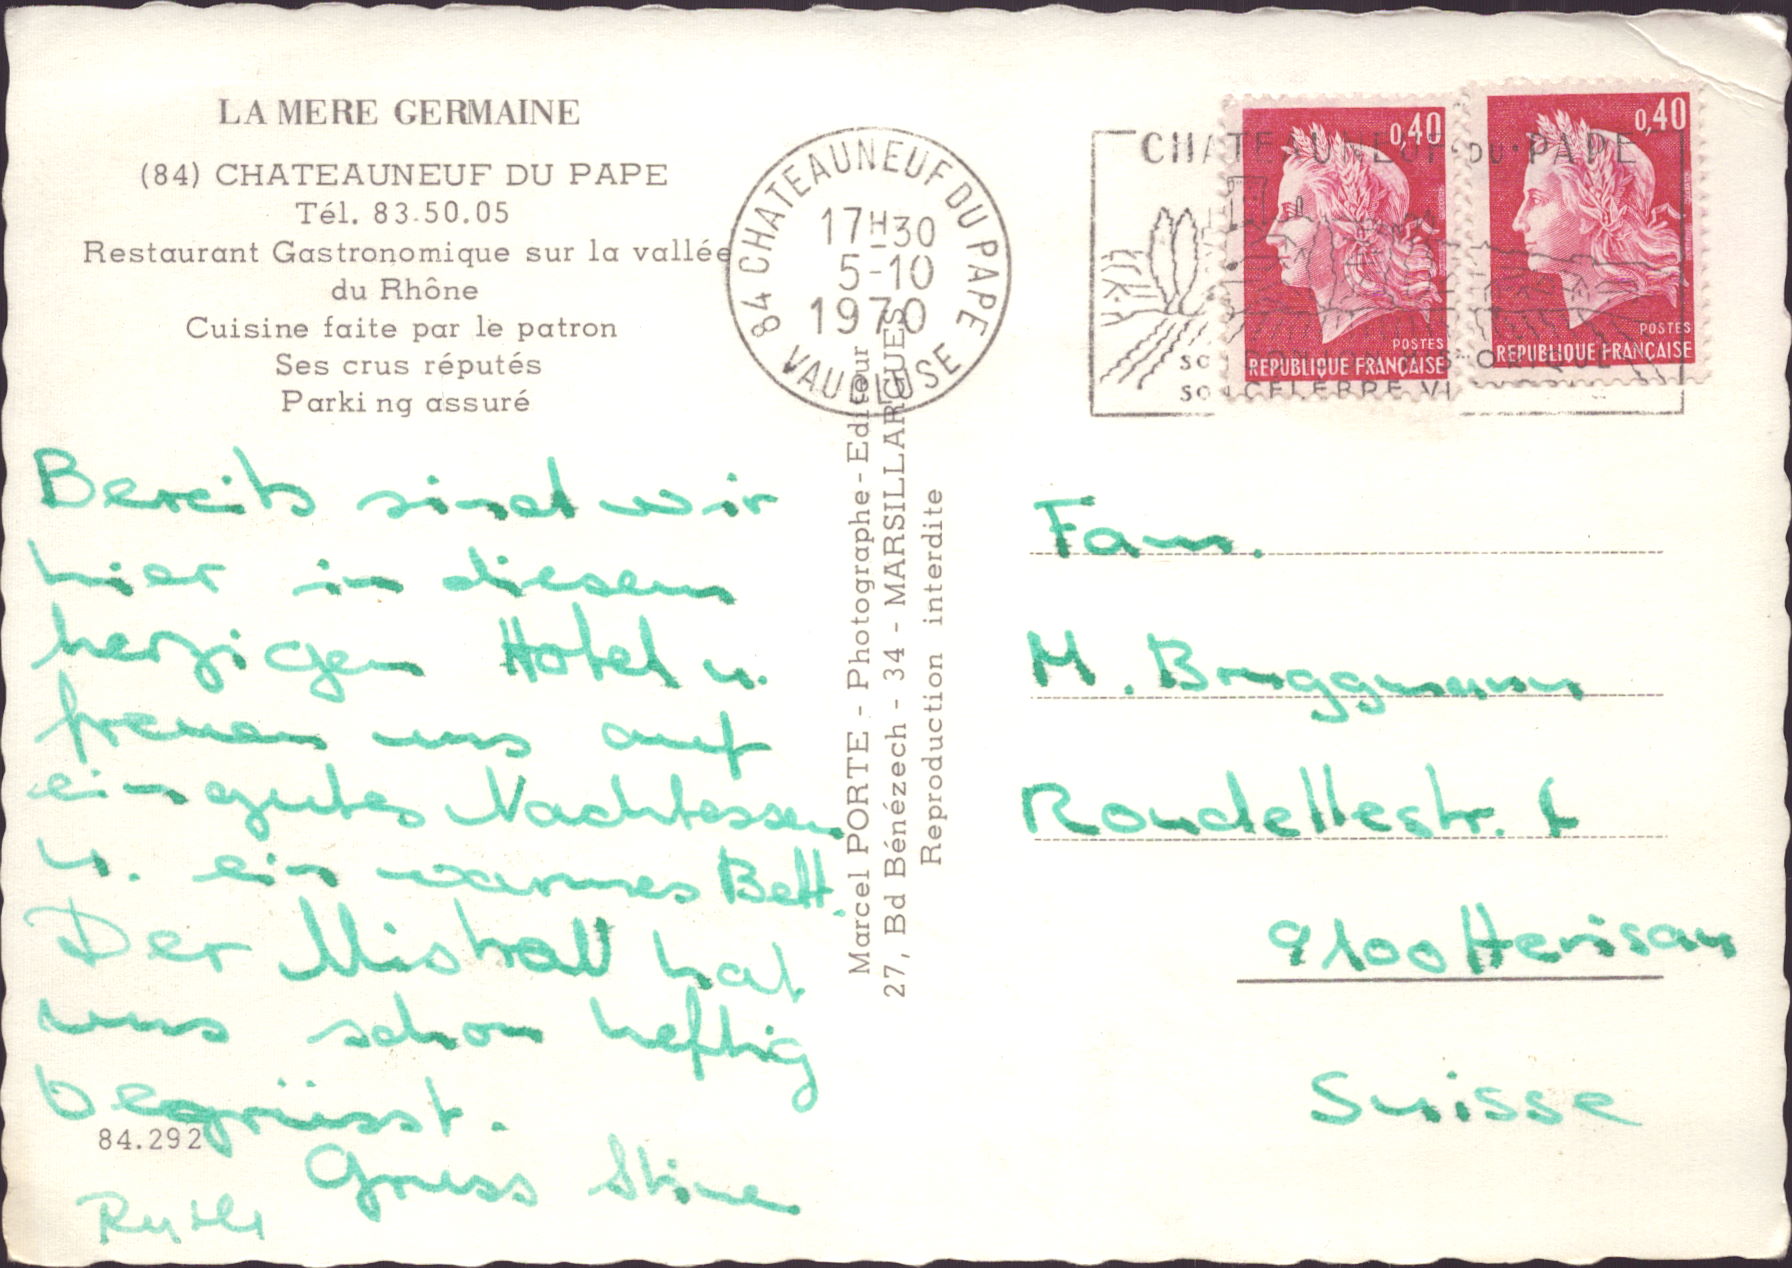 LA MERE GERMAINE
(84) CHATEAUNEUF DU PAPE
Tél. 83.50.05
Restaurant Gastronomique sur la vallée
du Rhône
Cuisine faite par le patron
Ses crus réputés
Parking assuré
Bereits sind wir
hier in diesem
herzigen Hotel u.
freuen uns auf
ein gutes Nachtessen
u. ein warmes Bett.
Der Mistral hat
uns schon heftig
begrüsst.
84.292
Gruss Stine
Ruthi
84 CHATEAUNEUF DU PAPE
17H30
5-10
1970
VAUCLUSE
Marcel PORTE - Photographe-Editeur
27, Bd Bénézech - 34 - MARSILLARGUES
Reproduction interdite
CHATEAUNEUF·DU·PAPE
0,40
POSTES
REPUBLIQUE FRANÇAISE
0,40
POSTES
REPUBLIQUE FRANÇAISE
Fam.
M. Bruggmann
Rondellestr. 1
9100 Herisau
Suisse